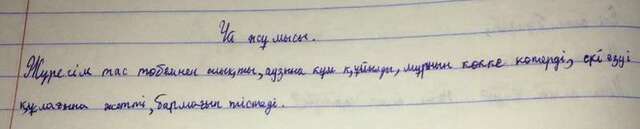 Үй жұмысы.
Жүрегім тас төбемнен шықты, аузына құм құйылды, мұрнын көкке көтерді, екі езуі
құлағына жетті, бармағын тістеді.